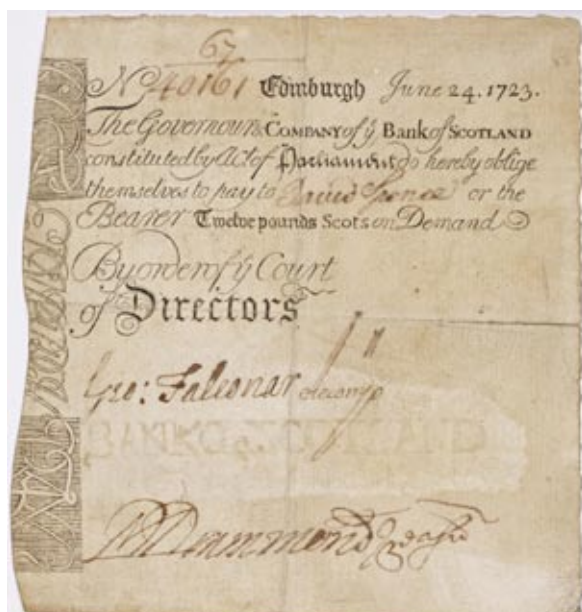 67
No 40161 Edinburgh June 24. 1723.
The Governour & COMPANY of ye BANK of SCOTLAND
constituted by Act of Parliament do hereby oblige
themselves to pay to David Spence or the
Bearer Twelve pounds Scots on Demand
By order of ye Court
of Directors
Geo: Falconar accompt
BANK of SCOTLAND
Drummond